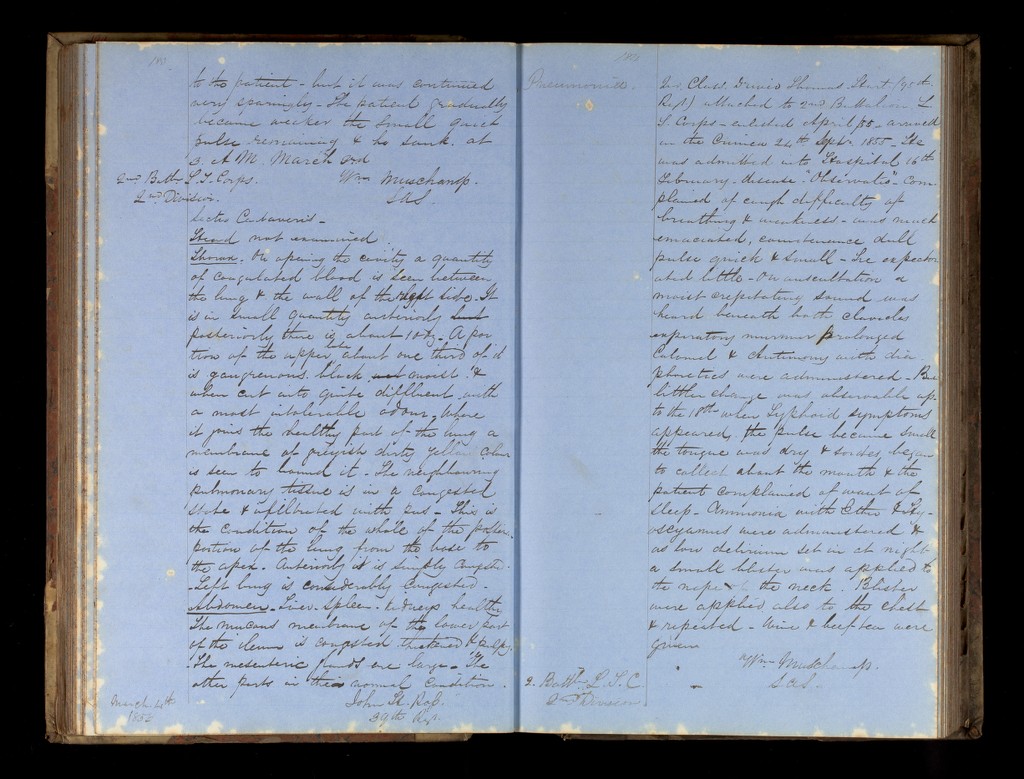 to the patient - but it was continued
very sparingly - The patient gradually
became weaker the small quick
pulse remaining & he sank at
3. A M. March 3rd
2nd Battn L. T. Corps. Wm Muschamp.
2nd Division. SAS.
Sectio Cadaveris -
Head not examined.
Thorax. On opening the cavity a quantity
of coagulated blood is seen between
the lung & the wall of the right side. It
is in small quantity anteriorly but
posteriorly there is about 10 oz. A por
tion of the upper lobe about one third of it
is gangrenous. black moist &
when cut into quite diffluent with
a most intolerable odour. Where
it joins the healthy part of the lung a
membrane of greyish dirty yellow colour
is seen to bound it - The neighbouring
pulmonary tissue is in a congested
state & infiltrated with pus - This is
the condition of the whole of the poster.
portion of the lung from the base to
the apex. Anteriorly it is simply congestd.
- Left lung is considerably congested -
Abdomen - Liver - Spleen - kidneys healthy
The mucous membrane of the lower part
of the ileum is congested thickened & pulpy.
- The mesenteric glands are large - The
other parts in their normal condition.
March 4th John St.
1856 39th Rgt.
Pneumonia.
2nd Class. Driver Thomas Hart (90th
Regt) attached to 2nd Battalion L
T. Corps - enlisted April /55 - arrived
in the Crimea 24th Septr 1855 - He
was admitted into Hospital 16th
February - disease "Observatio" - Com
plained of cough difficulty of
breathing & weakness - was much
emaciated, countenance dull
pulse quick & small - he expector
ated little - On auscultation a
moist crepitating sound was
heard beneath both clavicles
expiratory murmur prolonged
Calomel & Antimony with dia
phoretics were administered - But
little change was observable up
to the 18th when Typhoid symptoms
appeared. the pulse became small
the tongue was dry & sordes began
to collect about the mouth & the
patient complained of want of
sleep - Ammonia with Ether & Hy-
oscyamus were administered &
as low delirium set in at night
a small blister was applied to
the nape of the neck. Blister
were applied also to the chest
& repeated - wine & beef tea were
given
Wm Muschamp.
2. Battn L. T. C SAS.
2nd Division